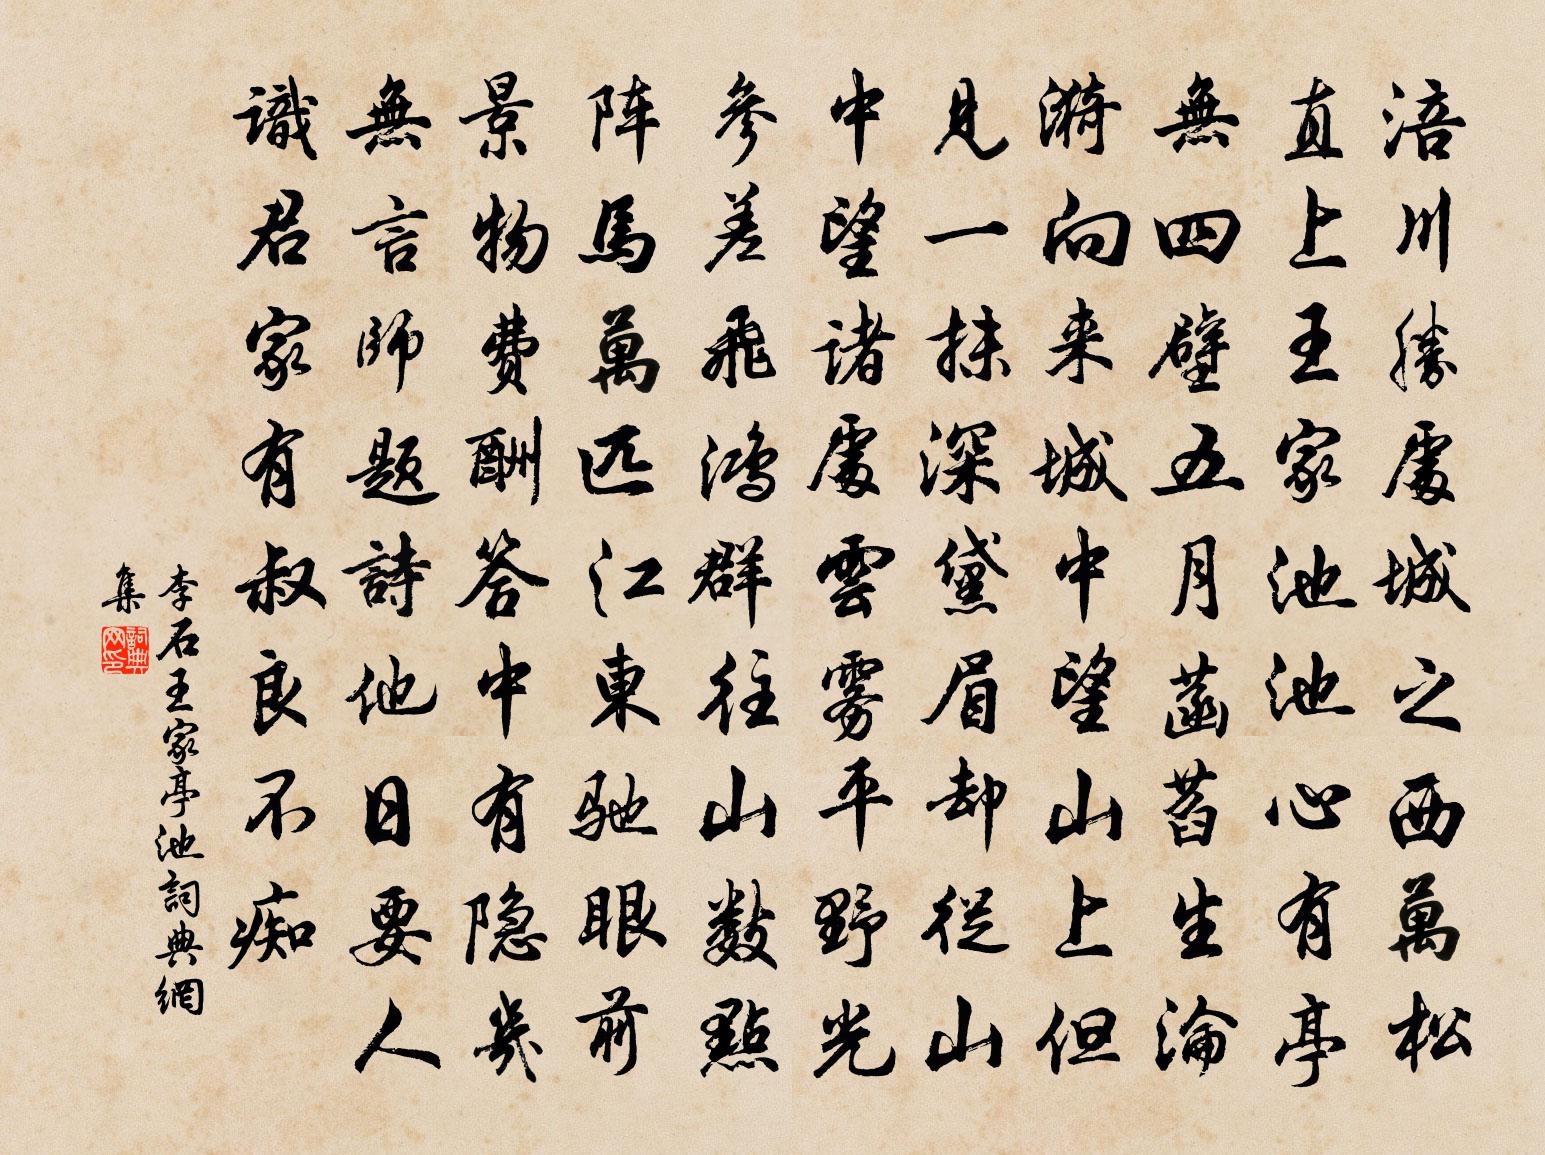 涪川勝處城之西萬松
直上王家池池心有亭
無四壁五月菡萏生淪
漪向来城中望山上但
見一抹深黛眉却從山
中望诸處雲雾平野光
參差飛鴻群往山數點
阵馬萬匹江東驰眼前
景物费酬答中有隐几
無言師題詩他日要人
識君家有叔良不痴
李石王家亭池詞典網
集
詞典网印